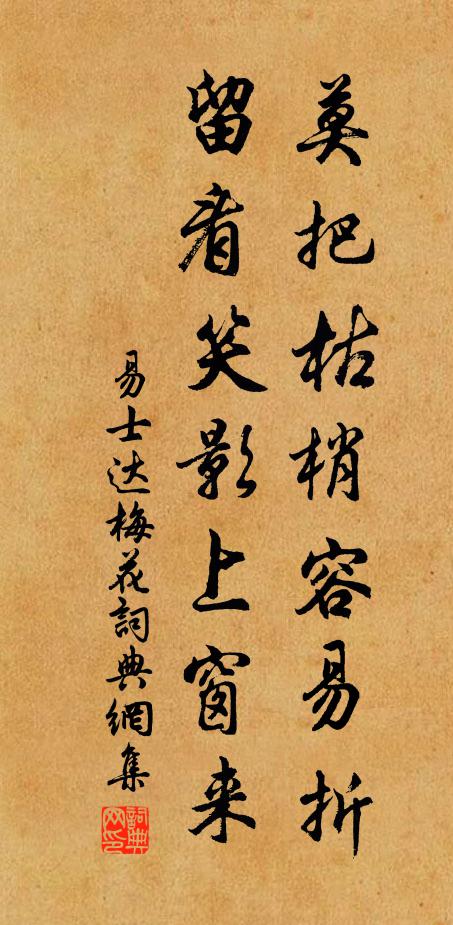 莫把枯梢容易折
留看笑影上窗来
易士达梅花詞典網集
詞典网印